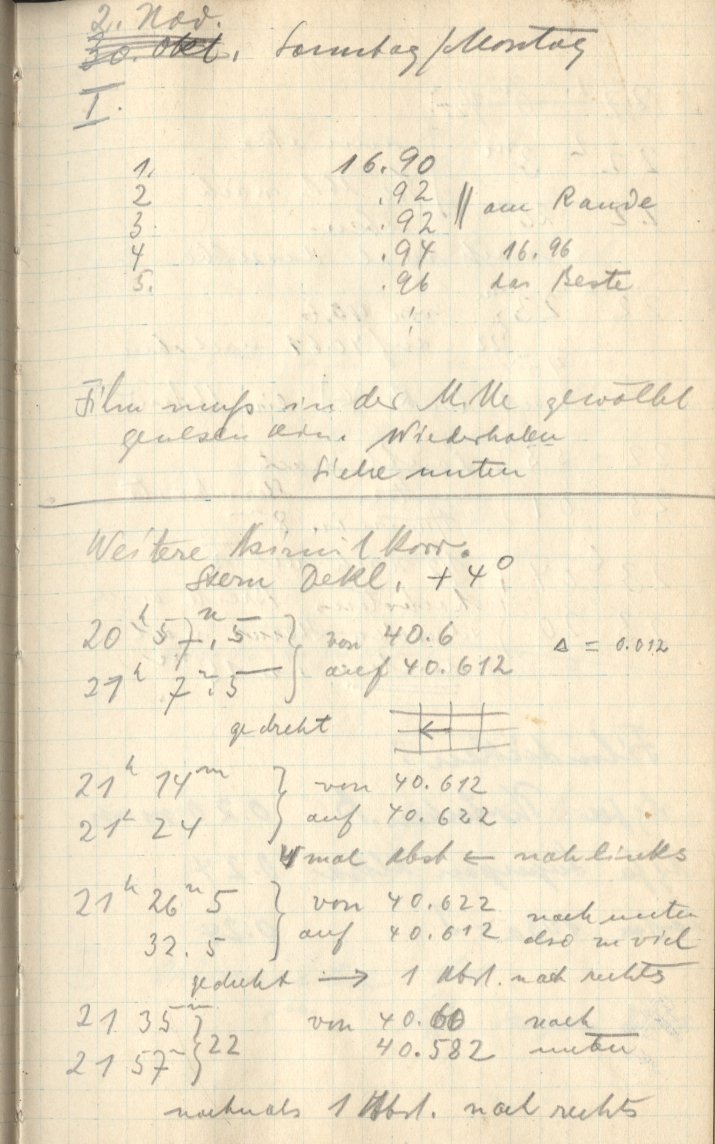 2. Nov.
30. Okt. Sonntag/Montag
I.
1. 16.90
2 .92 || am Rande
3. .92
4 .94 16.96
5. .96 das Beste
Film muß in der Mitte gewölbt
gewesen sein. Wiederholen
Siehe unten
Weitere Azimutkorr.
Stern Dekl. + 4°
20ʰ 57ᵐ.5 } von 40.6 Δ = 0.012
21ʰ 7ᵐ.5 } auf 40.612
gedreht ←
21ʰ 14ᵐ } von 40.612
21ʰ 24 } auf 40.622
4 mal Abst ← nach links
21ʰ 26ᵐ 5 } von 40.622 nach unten
32.5 } auf 40.612 also zu viel
gedreht → 1 Abst. nach rechts
21 35ᵐ } von 40.60 nach
21 57ᵐ } 22 40.582 unten
nochmals 1 Abst. nach rechts